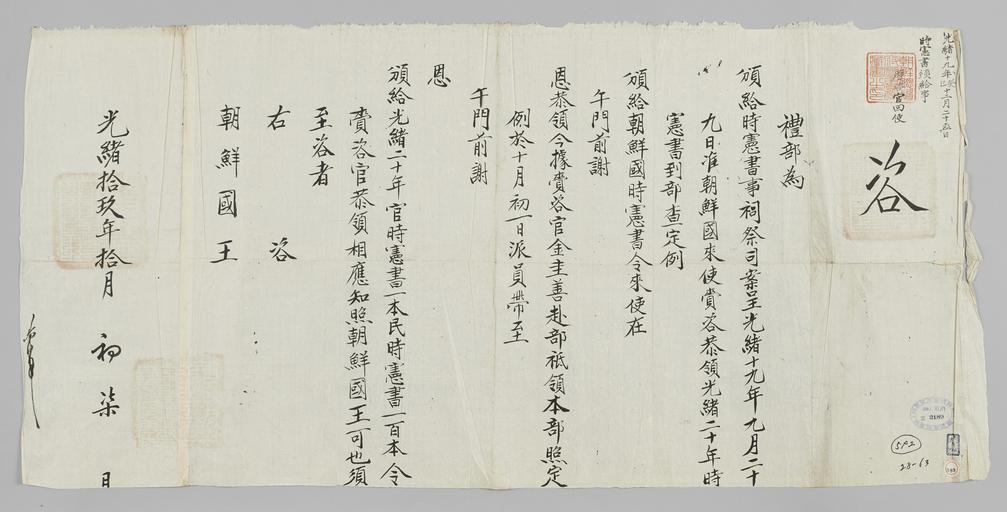 光緒十九年癸巳十二月二十五日
時憲書頒給事
齎咨官回便
咨
禮部為
頒給時憲書事祠祭司案呈光緒十九年九月二十
九日准朝鮮國來使賫咨恭領光緒二十年時
憲書到部查定例
頒給朝鮮國時憲書令來使在
午門前謝
恩恭領今據賫咨官金圭善赴部祗領本部照定
例於十月初一日派員帶至
午門前謝
恩
頒給光緒二十年官時憲書一本民時憲書一百本令
賫咨官恭領相應知照朝鮮國王可也須
至咨者
右咨
朝鮮國王
光緒拾玖年拾月初柒日
2189
592
28-63